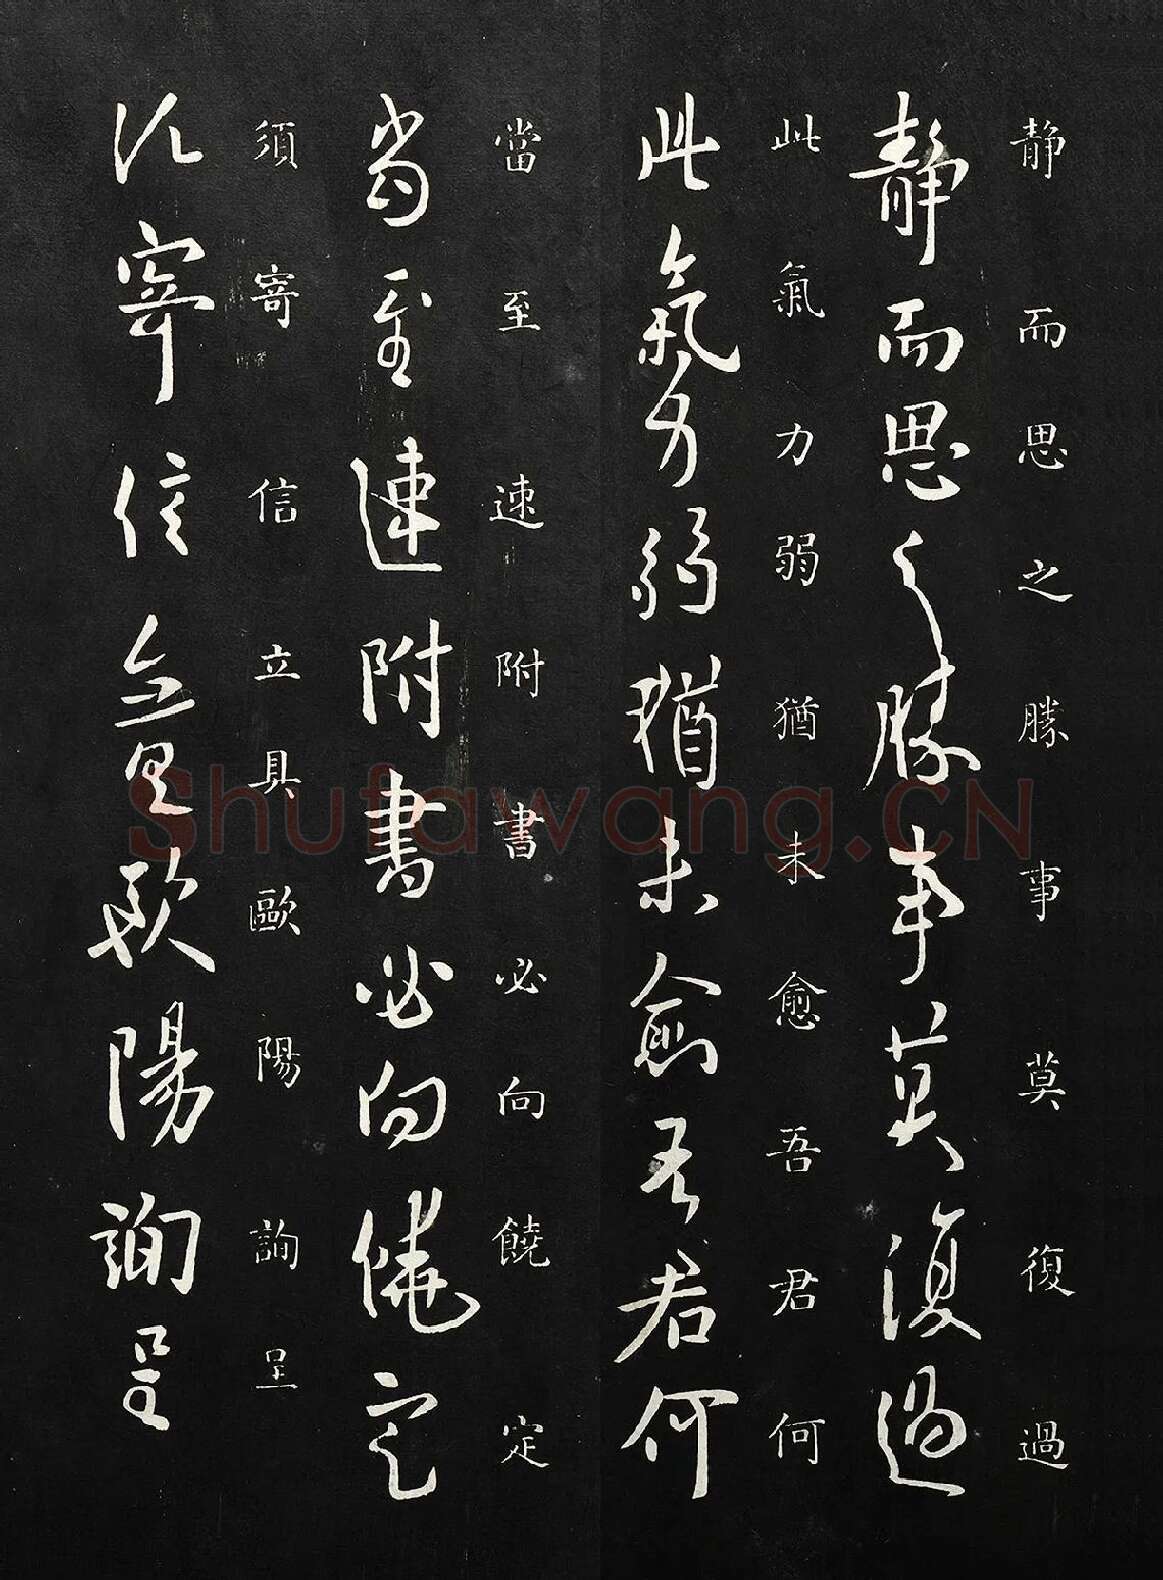 靜而思之勝事莫復過
靜而思之勝事莫復過
此氣力弱猶未愈吾君何
此氣力弱猶未愈吾君何
當至速附書必向饒定
當至速附書必向饒定
須寄信立具歐陽詢呈
須寄信立具歐陽詢呈
Shufawang.CN